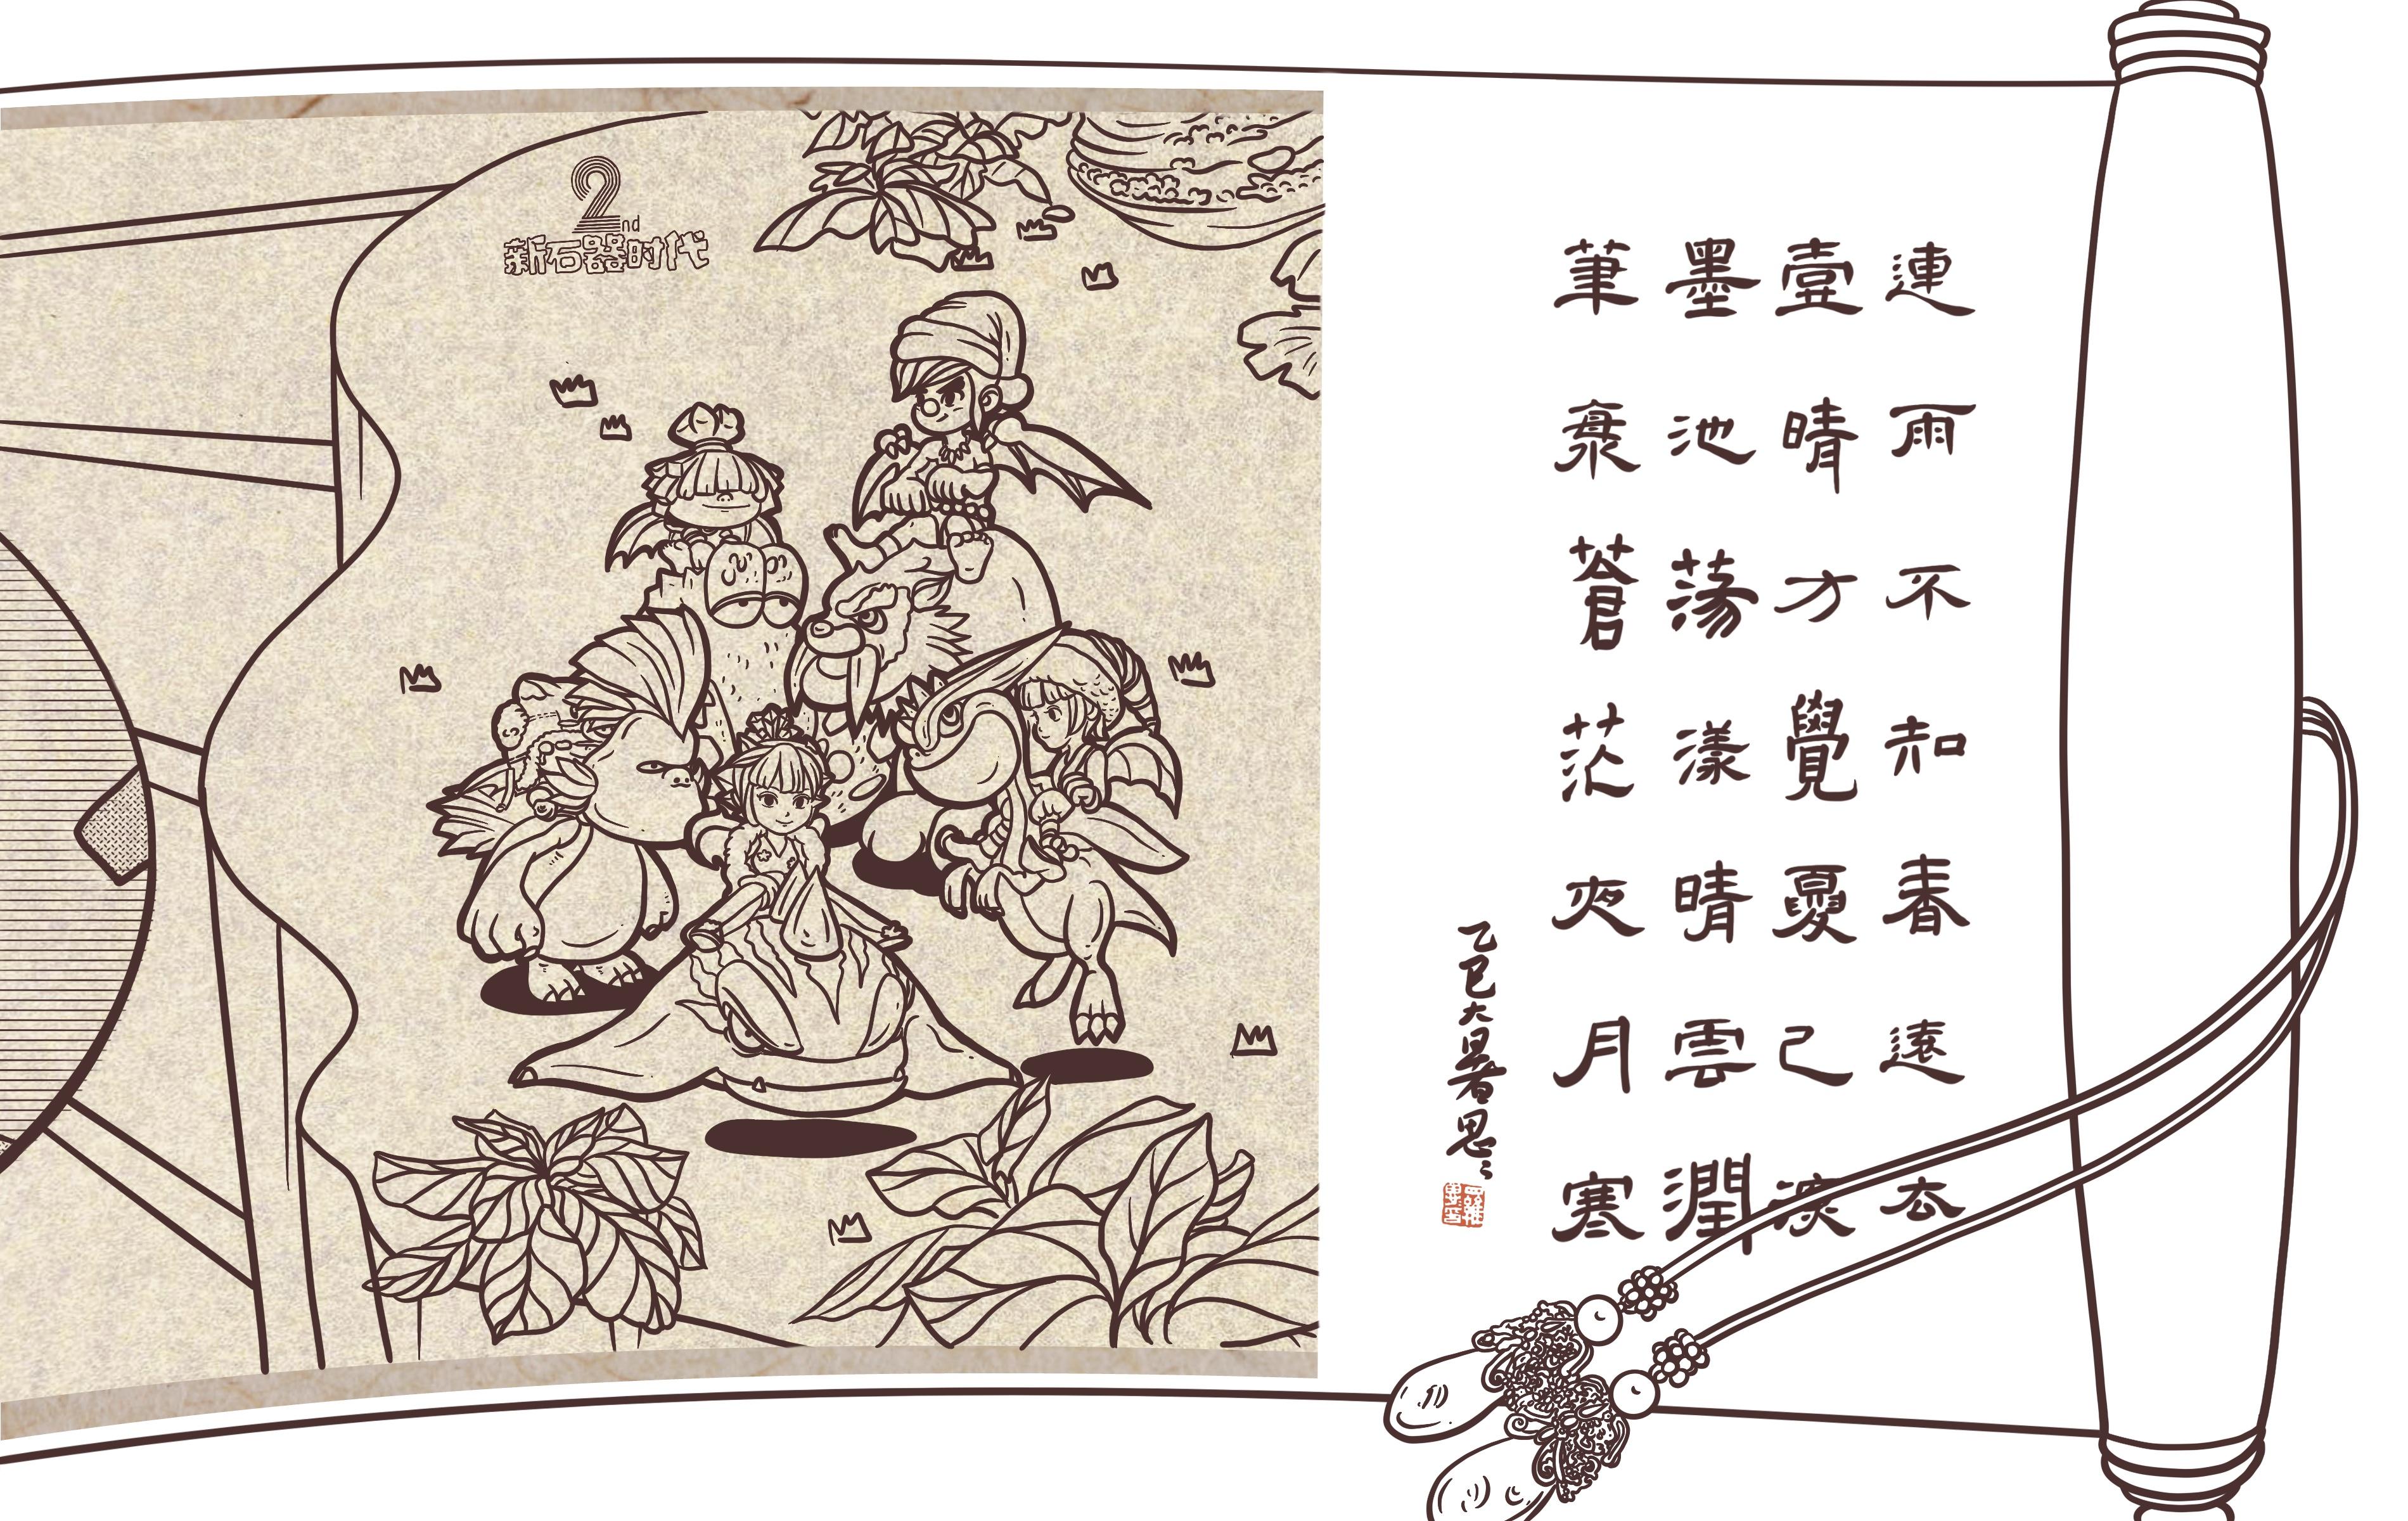 2nd
新石器时代
連雨不知春遠去
壹晴方覺夏已深
墨池蕩漾晴雲潤
筆蒼茫夜月寒
乙巳大暑思〻